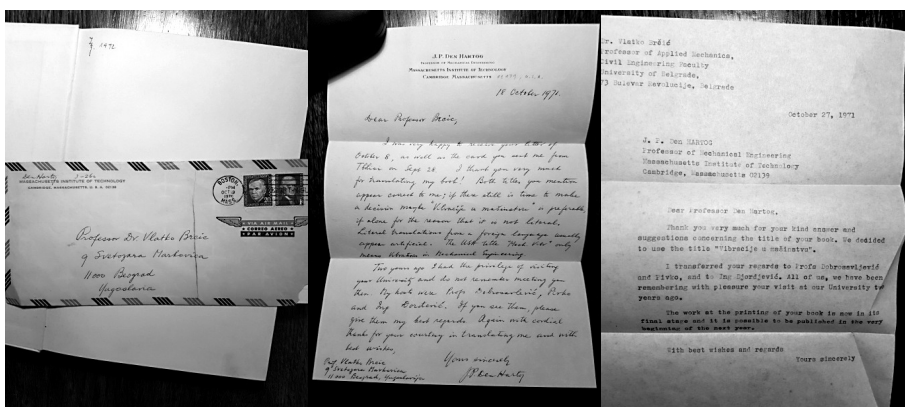 1972
Den Hartog 3-262
MASSACHUSETTS INSTITUTE OF TECHNOLOGY
CAMBRIDGE, MASSACHUSETTS, U.S.A. 02139
BOSTON
PM
OCT 18
1971
MASS.
VIA AIR MAIL
CORREO AEREO
PAR AVION
Professor Dr. Vlatko Brcic
9 Svetozara Markovica
11000 Beograd
Yugoslavia
J. P. DEN HARTOG
PROFESSOR OF MECHANICAL ENGINEERING
MASSACHUSETTS INSTITUTE OF TECHNOLOGY
CAMBRIDGE, MASSACHUSETTS 02139, U.S.A.
18 October 1971.
Dear Professor Brcic,
I was very happy to receive your letter of
October 8, as well as the card you sent me from
on Sept 28. I thank you very much
for translating my book! Both titles you mention
appear correct to me; if there still is time to make
a decision maybe "Vibracije u mašinstvu" is preferable,
if alone for the reason that it is not literal.
Literal translations from a foreign language usually
appear artificial. The title only
means Vibration in Mechanical Engineering.
Two years ago I had the privilege of visiting
your University and do not remember meeting you
then. My hosts were Prof. Dobrosavlević, Pivko
and Ing Dordević. If you see them, please
give them my best regards. Again with cordial
thanks for your courtesy in translating me and with
best wishes,
Yours sincerely
J.P. Den Hartog
Prof. Vlatko Brcic
9 Svetozara Markovica
11000 Beograd, Yugoslavija
Dr. Vlatko Brčić
Professor of Applied Mechanics,
Civil Engineering Faculty
University of Belgrade,
73 Bulevar Revolucije, Belgrade
October 27, 1971
J. P. Den HARTOG
Professor of Mechanical Engineering
Massachusetts Institute of Technology
Cambridge, Massachusetts 02139
Dear Professor Den Hartog,
Thank you very much for your kind answer and
suggestions concerning the title of your book. We decided
to use the title "Vibracije u mašinstvu".
I transferred your regards to Profs Dobrosavljević
and Pivko, and to Ing Djordjević. All of us, we have been
remembering with pleasure your visit at our University two
years ago.
The work at the printing of your book is now in its
final stage and it is possible to be published in the very
beginning of the next year.
With best wishes and regards
Yours sincerely